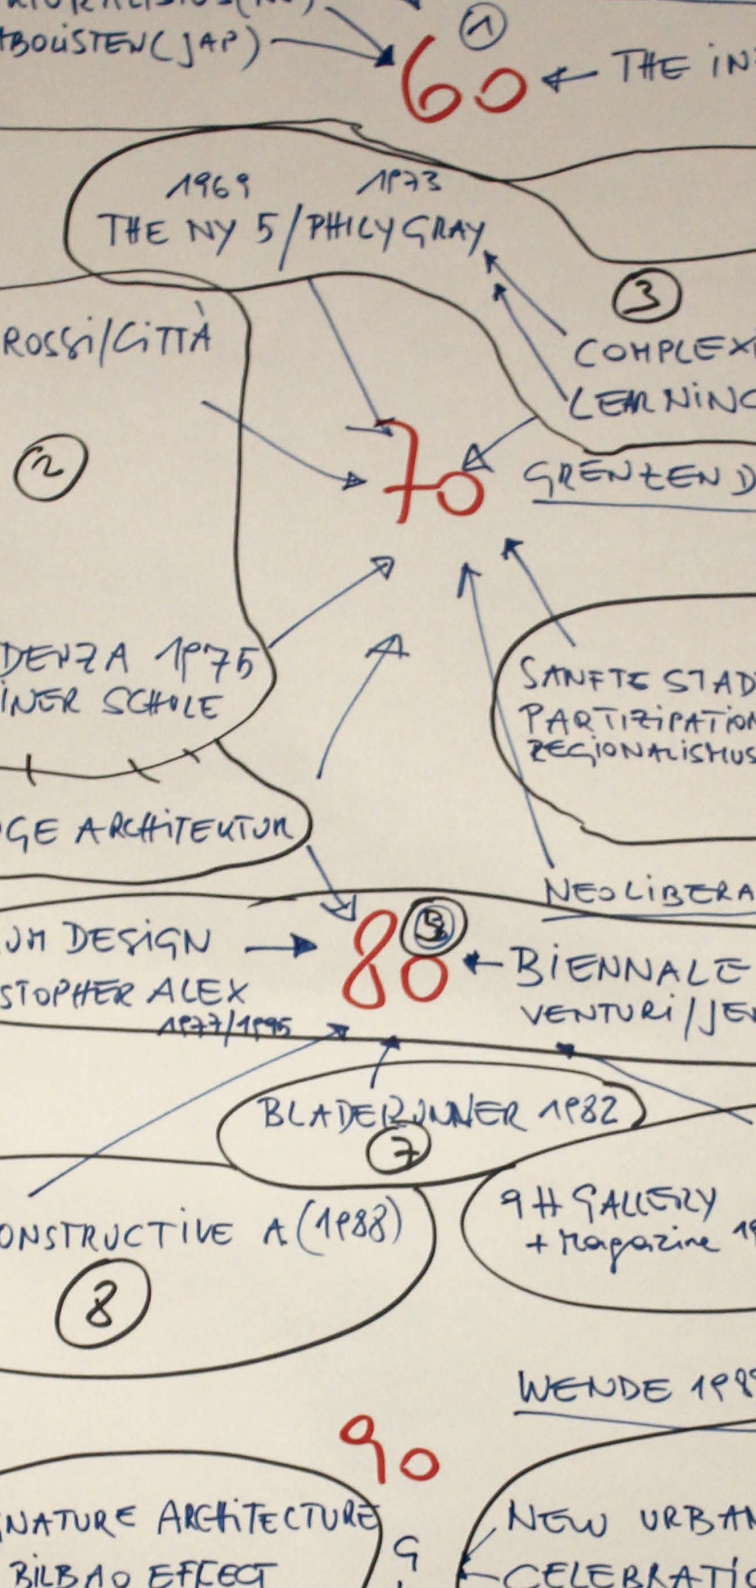 1
BOLISTEN (JAP)
60
THE IN
1969 1973
THE NY 5 / PHILY GRAY
3
ROSSI/CITTÀ
COMPLEX
LEARNING
2
70
GRENZEN D
DENZA 1975
INER SCHULE
SANFTE STAD
PARTIZIPATION
REGIONALISMUS
GE ARCHITEKTUR
NEOLIBERA
UM DESIGN
80
BIENNALE
STOPHER ALEX
VENTURI/JE
1977/1995
BLADERUNNER 1982
7
ONSTRUCTIVE A (1988)
9H GALLERY
+ Magazine 19
8
WENDE 1989
90
NATURE ARCHITECTURE
NEW URBAN
BILBAO EFFECT
CELEBRATI